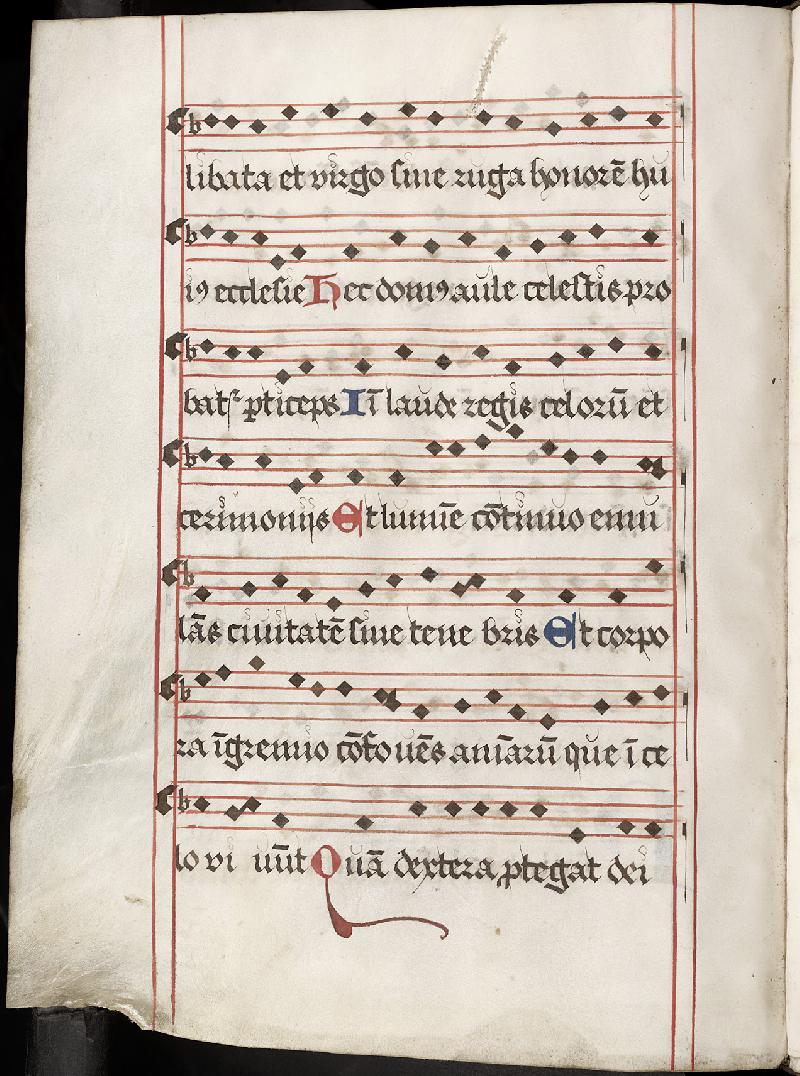 libata et virgo sine ruga honorē hu
iꝰ ecclesie Hec domꝰ aule celestis pro
batꝰ ꝑticeps Iī laude regis celorū et
cerimoniis Et lumīe cōtinuo emu
lās ciuitatē sine tene bris Et corpo
ra ī gremio cōfouēs aniārū que ī ce
lo vi uūt Quā dextera ꝓtegat dei